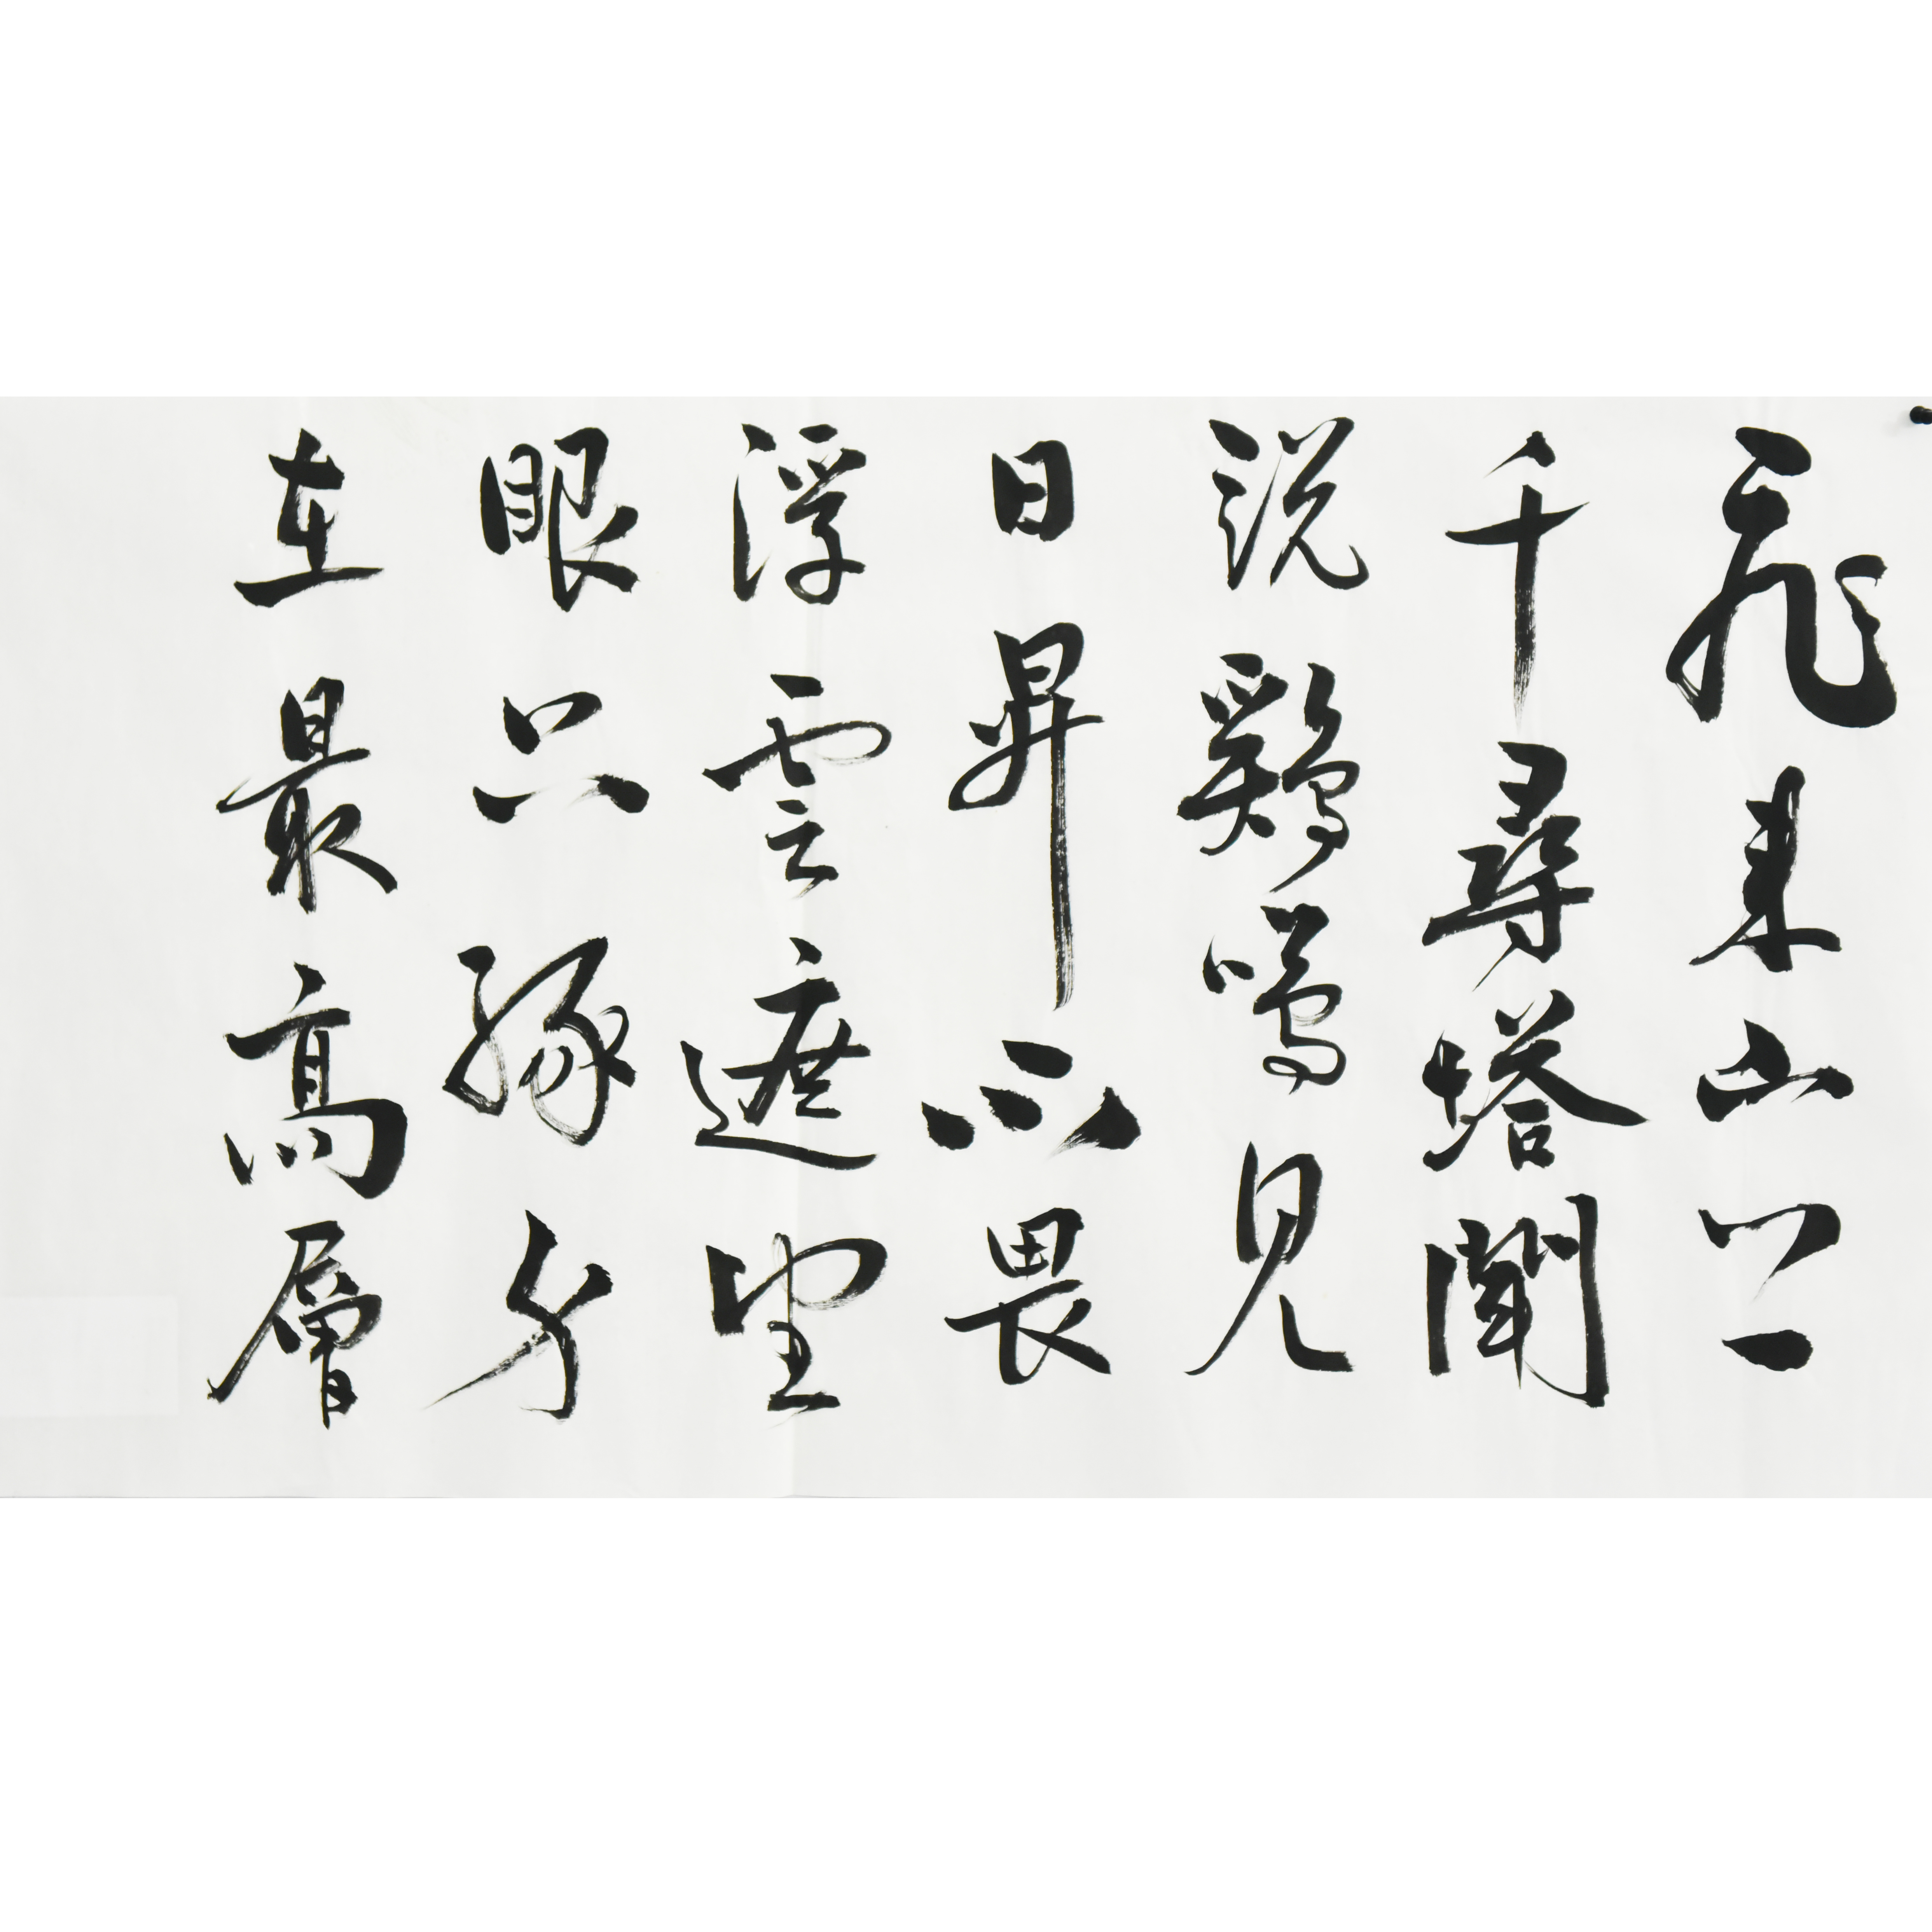 飛来山上
千尋塔聞
説鷄鳴見
日昇不畏
浮雲遮望
眼只緣身
在最高層